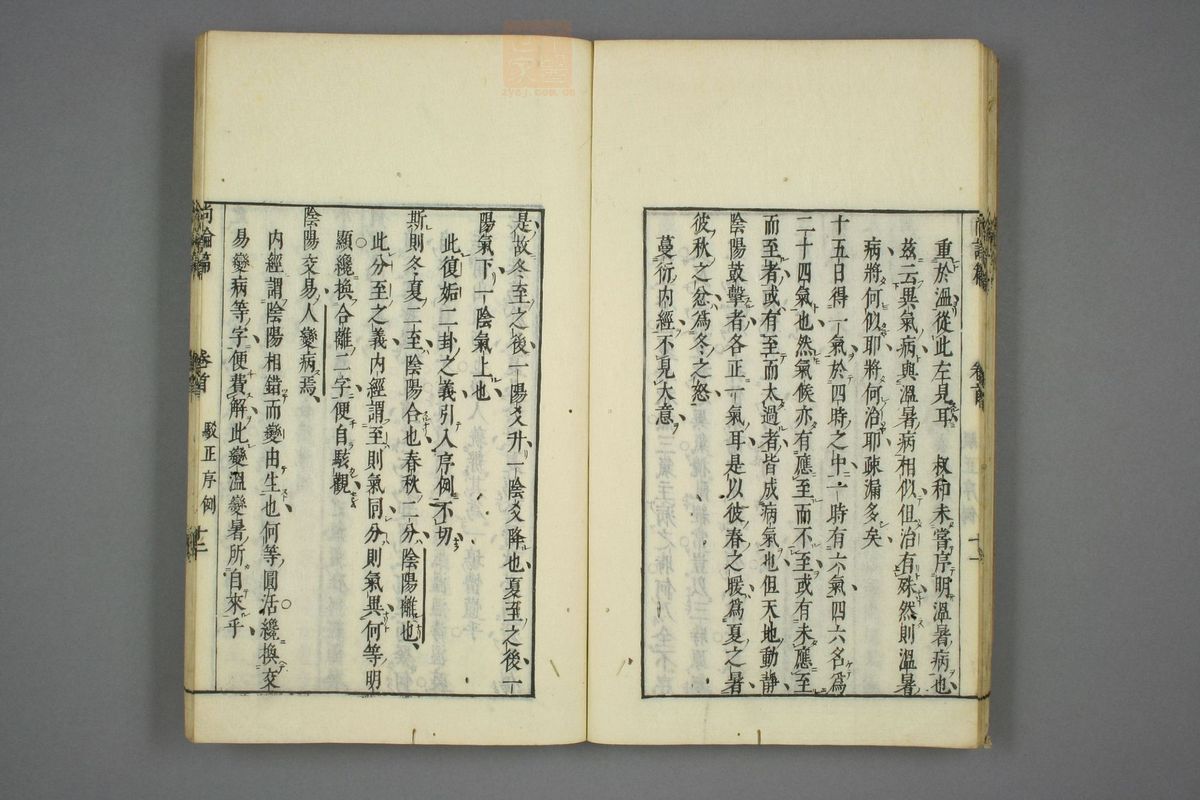 重於溫從此左見耳　叔和未嘗序明溫暑病也
茲云異氣病與溫暑病相似但治有殊然則溫暑
病將何似耶將何治耶疎漏多矣
十五日得一氣於四時之中一時有六氣四六名爲
二十四氣也然氣候亦有應至而不至或有未應至
而至者或有至而太過者皆成病氣也但天地動靜
陰陽鼓擊者各正一氣耳是以彼春之暖爲夏之暑
彼秋之忿爲冬之怒
蔓衍內經不見大意
卷首
十一
是故冬至之後一陽爻升一陰爻降也夏至之後一
陽氣下一陰氣上也
此復姤二卦之義引入序例不切
斯則冬夏二至陰陽合也春秋二分陰陽離也
此分至之義內經謂至則氣同分則氣異何等明
顯纔換合離二字便自駭觀
陰陽交易人變病焉
內經謂陰陽相錯而變由生也何等圓活纔換交
易變病等字便費解此變溫變暑所自來乎
尚論篇
卷首
駁正序例
十二